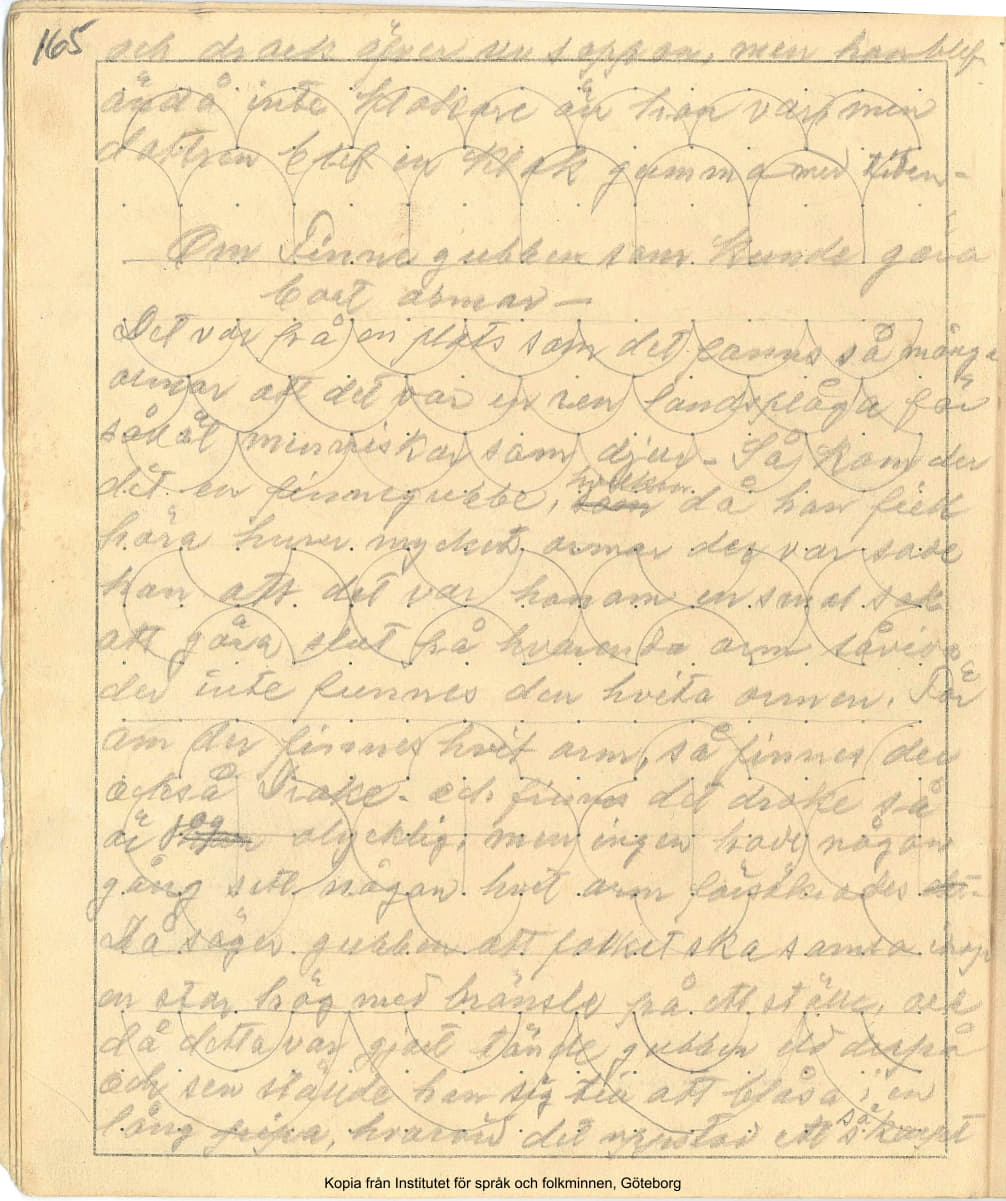 165 och drack äfven ur soppan, men han blef
ändå inte klokare än han var, men
dottren blef en klok gumma med tiden –
Om Finnegubben som kunde göra
bort ormar –
Det var på en plats som det fanns så många
ormar att det var en ren landsplåga för
såväl menniskor som djur – Så kom der
dit en finnegubbe, som hvilken då han fick
höra huru mycket ormar der var sade
han att det var honom en smal sak
att göra slut på hvarenda orm såvida
der inte funnes den hvita ormen. För
om der finnes hvit orm, så finnes der
också Drake – och finns det drake så
är jag olycklig, men ingen hade någon
gång sett någon hvit orm försäkrades
Då säger gubben att folket ska samla ihop
en stor hög med bränsle på ett ställe, och
då detta var gjort tände gubben eld derpå
och sen stälde han sig till att blåsa i en
lång pipa, hvarvid det uppstod ett så skarpt
Kopia från Institutet för språk och folkminnen, Göteborg